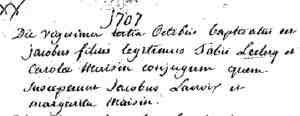 1707
Die vigesima tertia Octobris baptisatus est
jacobus filius legitimus Sabii Leclerq et
Carolæ Maisin conjugum quem
susceperunt Jacobus Lacroix et
margarita Maisin.